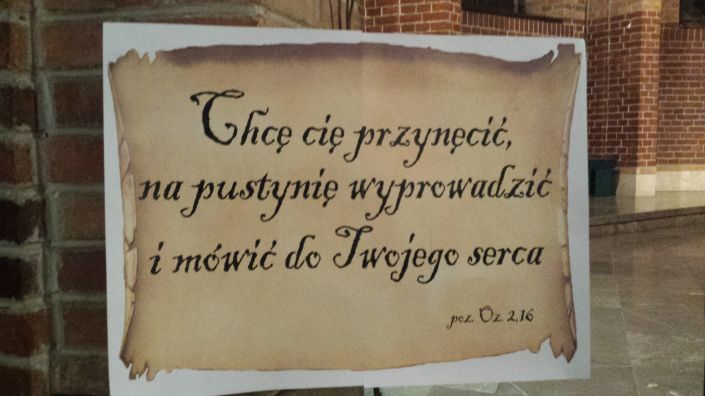 Chcę cię przynęcić,
na pustynię wyprowadzić
i mówić do Twojego serca
poz. Oz. 2,16